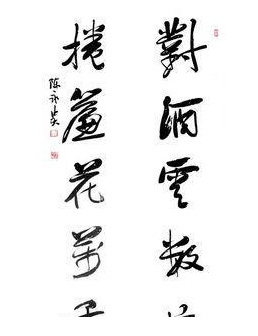 對酒雲數
捲簾花萬
陈永奕